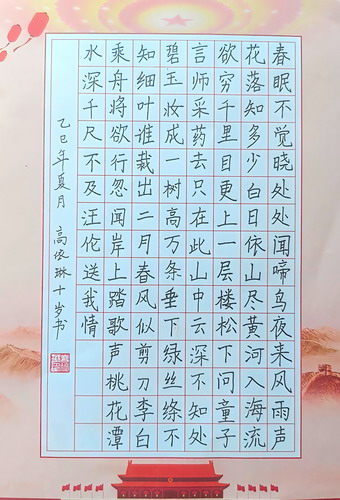 春眠不觉晓处处闻啼鸟夜来风雨声
花落知多少白日依山尽黄河入海流
欲穷千里目更上一层楼松下问童子
言师采药去只在此山中云深不知处
碧玉妆成一树高万条垂下绿丝绦不
知细叶谁裁出二月春风似剪刀李白
乘舟将欲行忽闻岸上踏歌声桃花潭
水深千尺不及汪伦送我情
乙巳年夏月 高依琳十岁书